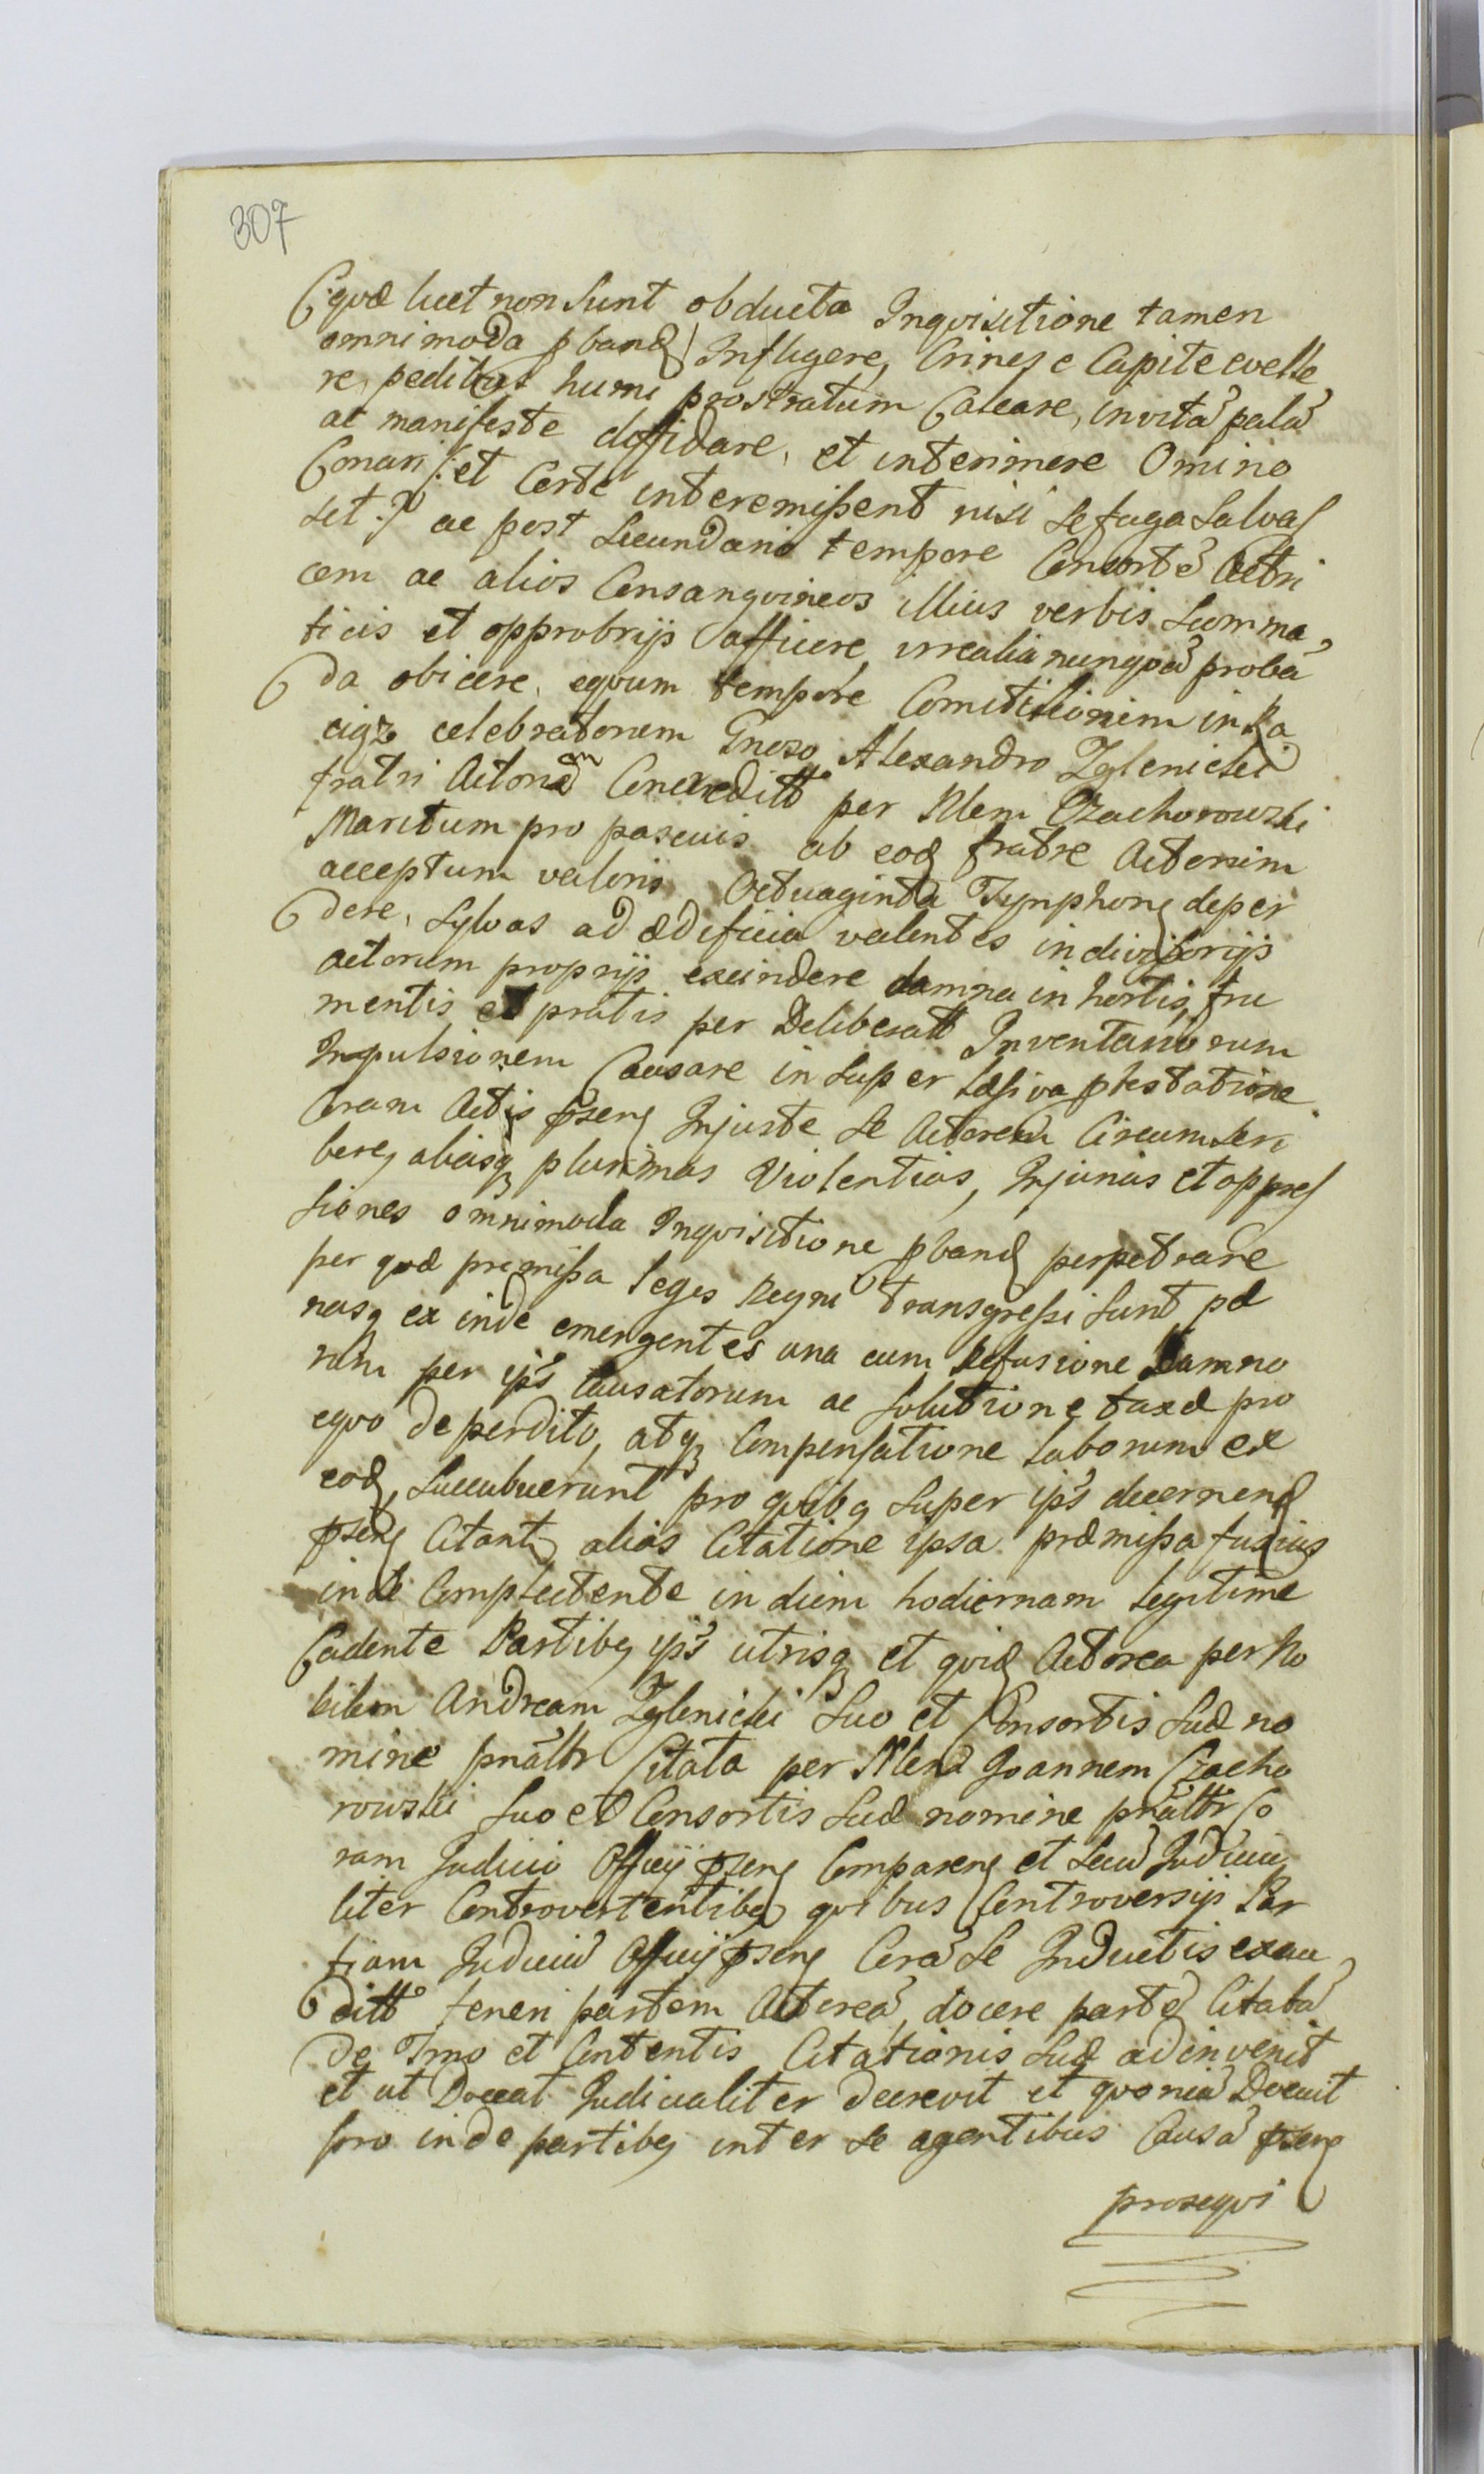 307
(:quæ licet non sunt obducta Inquisitione tamen
omnimoda pband) Infligere, Crines e Capite evelle
re, pedibus humi prostratum Calcare, invita pala
ac manifeste diffidare, et interimere Omino
Conari (:et Certe interemissent nisi se fuga salvas
set:) ac post secundario tempore Consorte Actri
cem ac alios Consangvineos illius verbis summa
ticis et opprobrijs afficere, irrealia nunqva proba
da obicere, eqvum tempore Comititiorum in Ra
ciąz celebratorum Gneroso Alexandro Zglenicki
fratri Actorum Concreditt per Nlem Czachorowski
Maritum pro pascuis ab eod fratre Actorum
acceptum valoris Octuaginta Tymphon deper
dere, Sylvas ad ædificia valentes in divisorijs
actorum proprijs exscindere damna in hortis, fru
mentis et pratis per Deliberatt Inventariorum
Inpulsionem Causare in super læsiva ptestatione
Coram Actis psen Injuste se Actorem Circumscri
bere, aliasq plurimas Violentias, Injurias et oppres
siones omnimoda Inqvisitione pband perpetrare
per qvæ premissa leges Regni transgressi sunt pæ
nasq ex inde emergentes una cum Refusione Damno
rum per ips Causatorum ac solutione taxæ pro
eqvo deperdito, atq Compensatione laborum ex
eod, succubuerunt pro qvibq super ips decernend
psen Citant alias Citatione ipsa præmissa fusius
in se Complectente in diem hodiernam legitime
Cadente Partibq ips utrisq et qvid Actorea per No
bilem Andream Zglenicki suo et Consortis suæ no
mine pnaltr Citata per Nlem Joannem Czacho
rowski suo et Consortis suæ nomine pnaltr Co
ram Judicio Officij psen Comparen et secu Judicia
liter Controvertentibq qvibus Controversijs Par
tium Judiciu Officij psen Cora se Inductis exau
ditt teneri partem Actorea, docere parte Citata
de Tmo et Contentis Citationis suæ adinvenit
et ut Doceat Judicialiter decrevit et qvonia Docuit
pro inde partibq inter se agentibus Causa psen
proseqvi